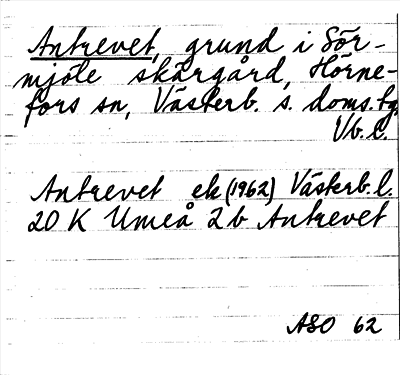 Antrevet, grund i Sör-
mjöle skärgård, Hörne-
fors sn, Västerb. s. doms.tg,
Vb.l.
Antrevet ek (1962) Västerb.l.
20 K Umeå 2b Antrevet
ASO 62